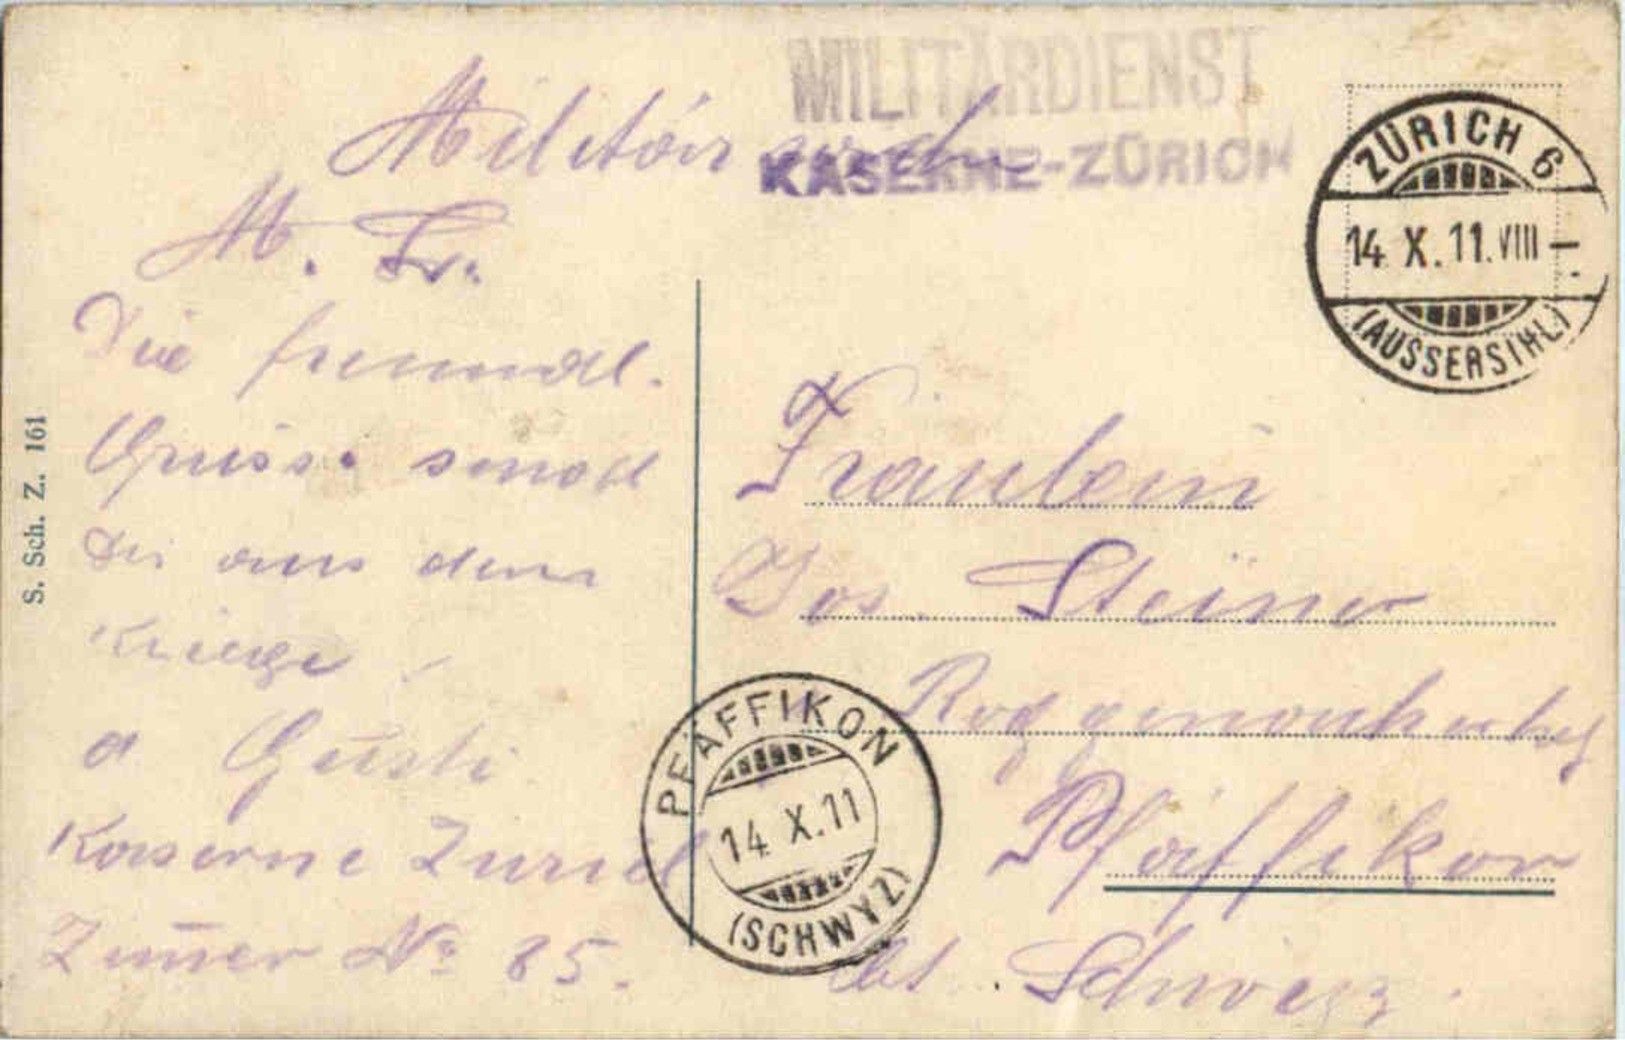 MILITÄRDIENST
KASERNE-ZÜRICH
Militär
ZÜRICH 6
14. X. 11. VIII –
(AUSSERSIHL)
M. L.
Die freundl.
Grüsse sendet
Dir aus dem
Kriege
a Gusti
Kaserne Zürich
Zim̅er No 85.
S. Sch. Z. 161
Fräulein
Jos. Steiner
Pfäffikon
kt. Schwyz
PFÄFFIKON
14. X. 11
(SCHWYZ)